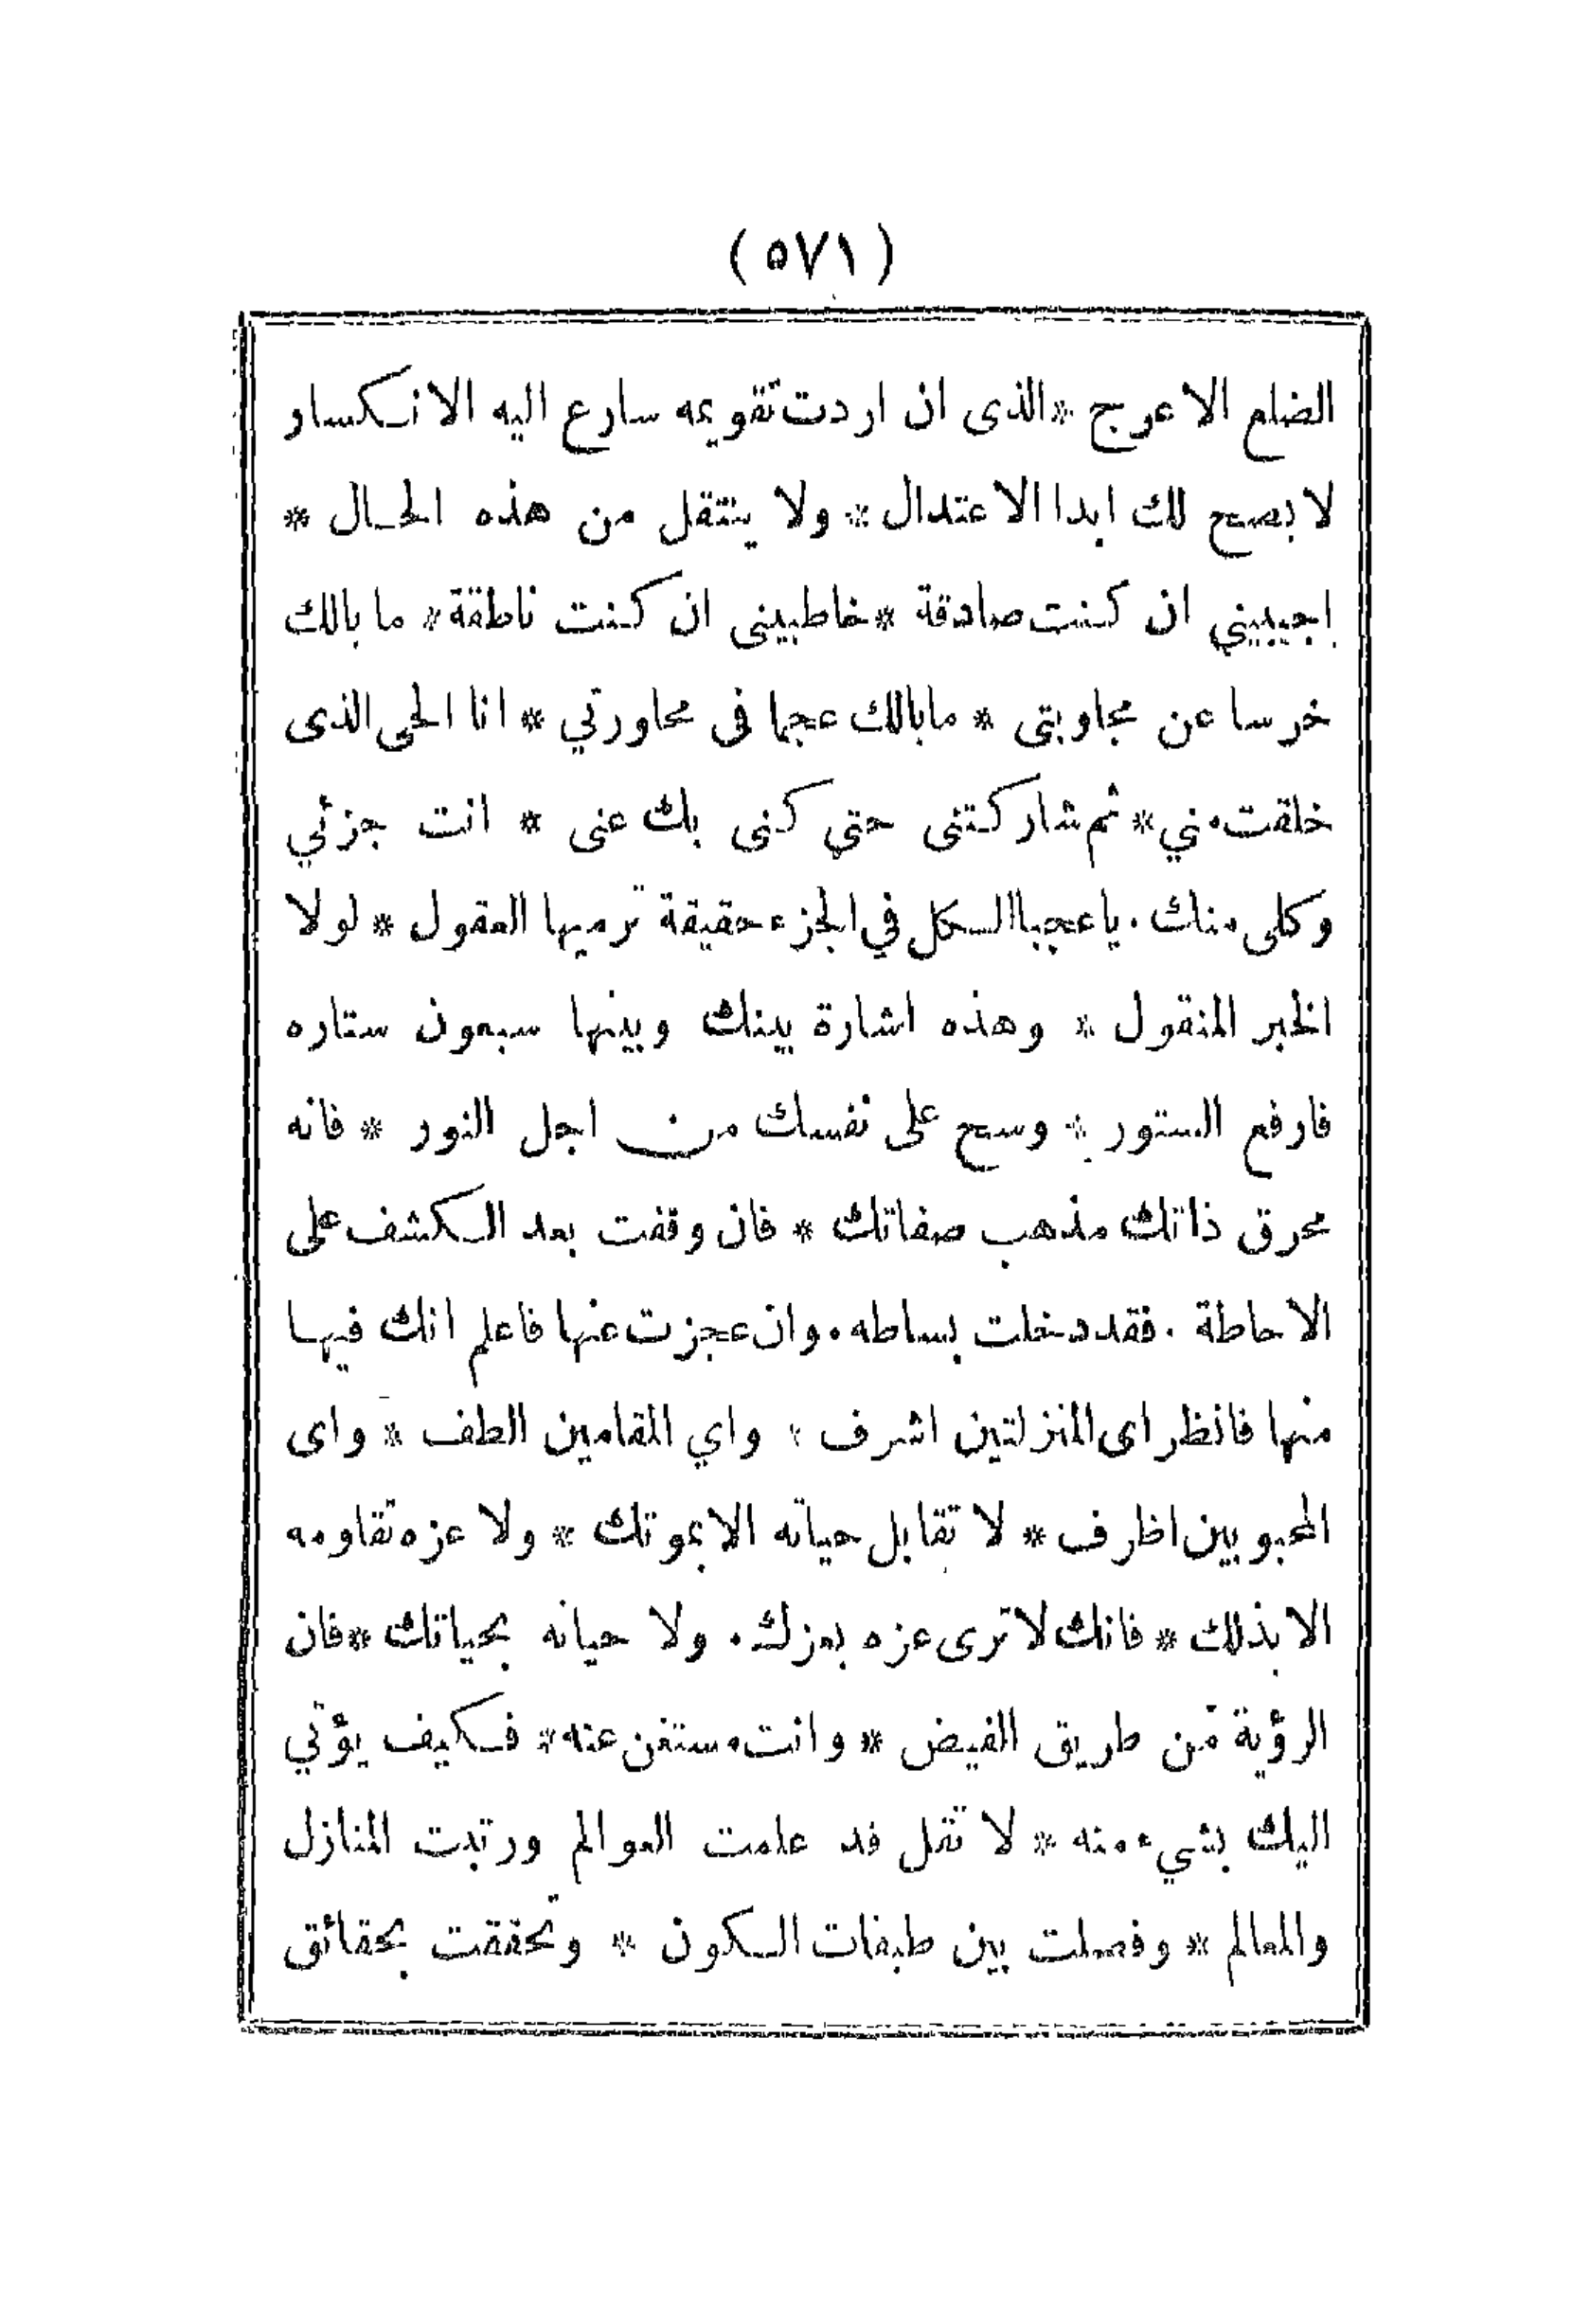 ( ٥٧١ )
الضلع الاعرج * الذى ان اردت تقويمه سارع اليه الانكسار
لا يصح لك ابدا الاعتدال * ولا ينتقل من هذه الحال *
اجيبيني ان كنت صادقة * خاطبينى ان كنت ناطقة * ما بالك
خرسا عن مجاوبتى * ما بالك عجما فى محاورتي * انا الحى الذى
خلقت مني * ثم شاركتنى حتي كنى بك عنى * انت جزئي
وكلى منك . يا عجبا الكل في الجزء حقيقة ترميها العقول * لولا
الخبر المنقول * وهذه اشارة بينك وبينها سبعون ستاره
فارفع الستور * وسح على نفسك من اجل النور * فانه
محرق ذاتك مذهب صفاتك * فان وقفت بعد الكشف على
الاحاطة . فقد دخلت بساطه . وان عجزت عنها فاعلم انك فيها
منها فانظر اى المنزلتين اشرف * واي المقامين الطف * واى
المحبوبين اظرف * لا تقابل حياته الا بموتك * ولا عزه تقاومه
الا بذلك * فانك لا ترى عزه بعزك . ولا حياته بحياتك * فان
الرؤية من طريق الفيض * وانت مستغن عنه * فكيف يؤتي
اليك بشيء منه * لا تقل قد علمت العوالم ورتبت المنازل
والمعالم * وفصلت بين طبقات الكون * وتحققت بحقائق